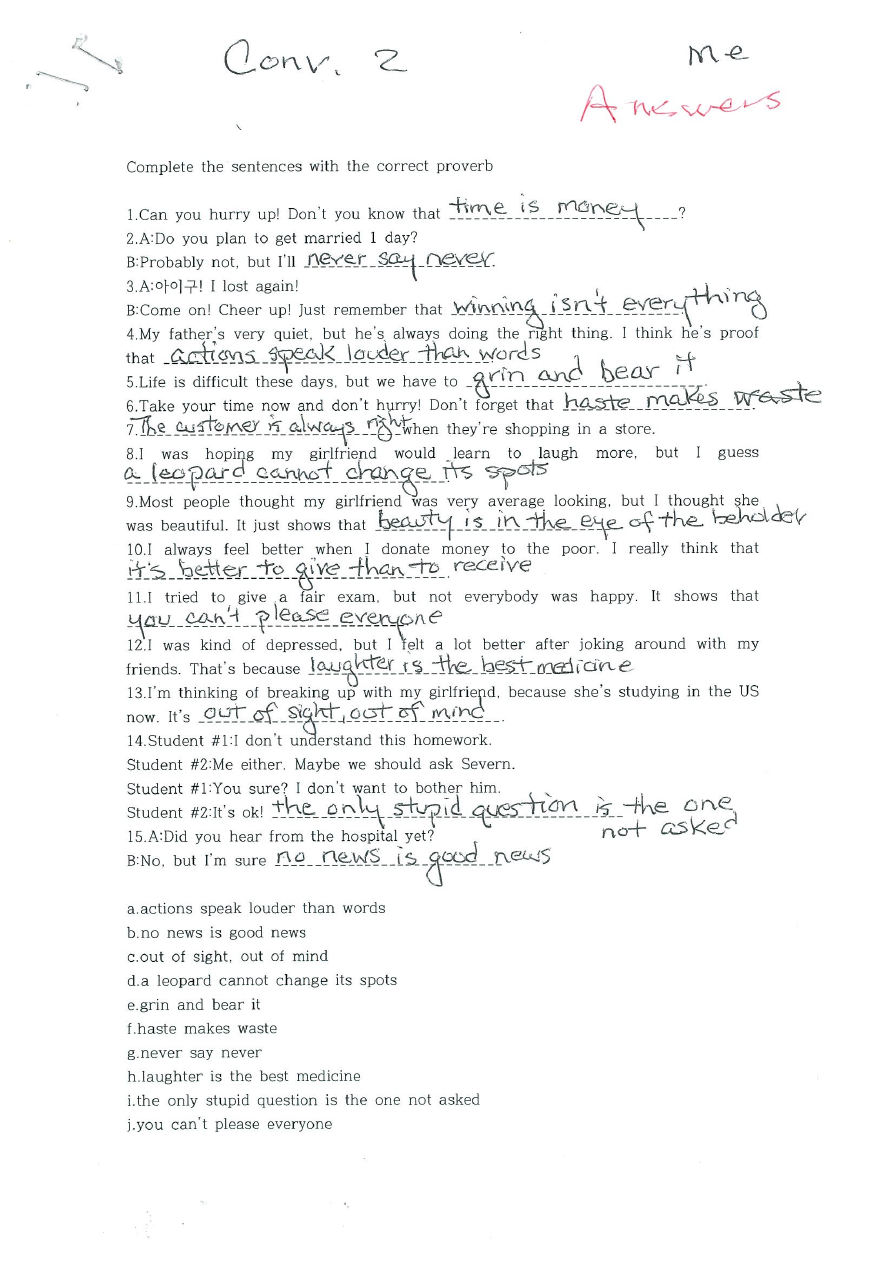 Conv. 2 me
Answers
Complete the sentences with the correct proverb
1.Can you hurry up! Don't you know that time is money?
2.A:Do you plan to get married 1 day?
B:Probably not, but I'll never say never.
3.A:아이구! I lost again!
B:Come on! Cheer up! Just remember that winning isn't everything
4.My father's very quiet, but he's always doing the right thing. I think he's proof
that actions speak louder than words
5.Life is difficult these days, but we have to grin and bear it.
6.Take your time now and don't hurry! Don't forget that haste makes waste.
7.The customer is always right when they're shopping in a store.
8.I was hoping my girlfriend would learn to laugh more, but I guess
a leopard cannot change its spots
9.Most people thought my girlfriend was very average looking, but I thought she
was beautiful. It just shows that beauty is in the eye of the beholder
10.I always feel better when I donate money to the poor. I really think that
it's better to give than to receive
11.I tried to give a fair exam, but not everybody was happy. It shows that
you can't please everyone
12.I was kind of depressed, but I felt a lot better after joking around with my
friends. That's because laughter is the best medicine
13.I'm thinking of breaking up with my girlfriend, because she's studying in the US
now. It's out of sight, out of mind.
14.Student #1:I don't understand this homework.
Student #2:Me either. Maybe we should ask Severn.
Student #1:You sure? I don't want to bother him.
Student #2:It's ok! the only stupid question is the one
not asked
15.A:Did you hear from the hospital yet?
B:No, but I'm sure no news is good news
a.actions speak louder than words
b.no news is good news
c.out of sight, out of mind
d.a leopard cannot change its spots
e.grin and bear it
f.haste makes waste
g.never say never
h.laughter is the best medicine
i.the only stupid question is the one not asked
j.you can't please everyone